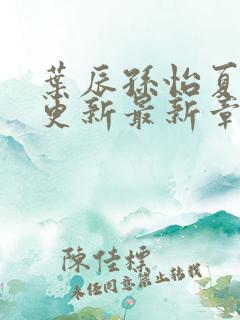 葉辰孫怡夏
更新最新章
陳佳標
未任同意禁止转载